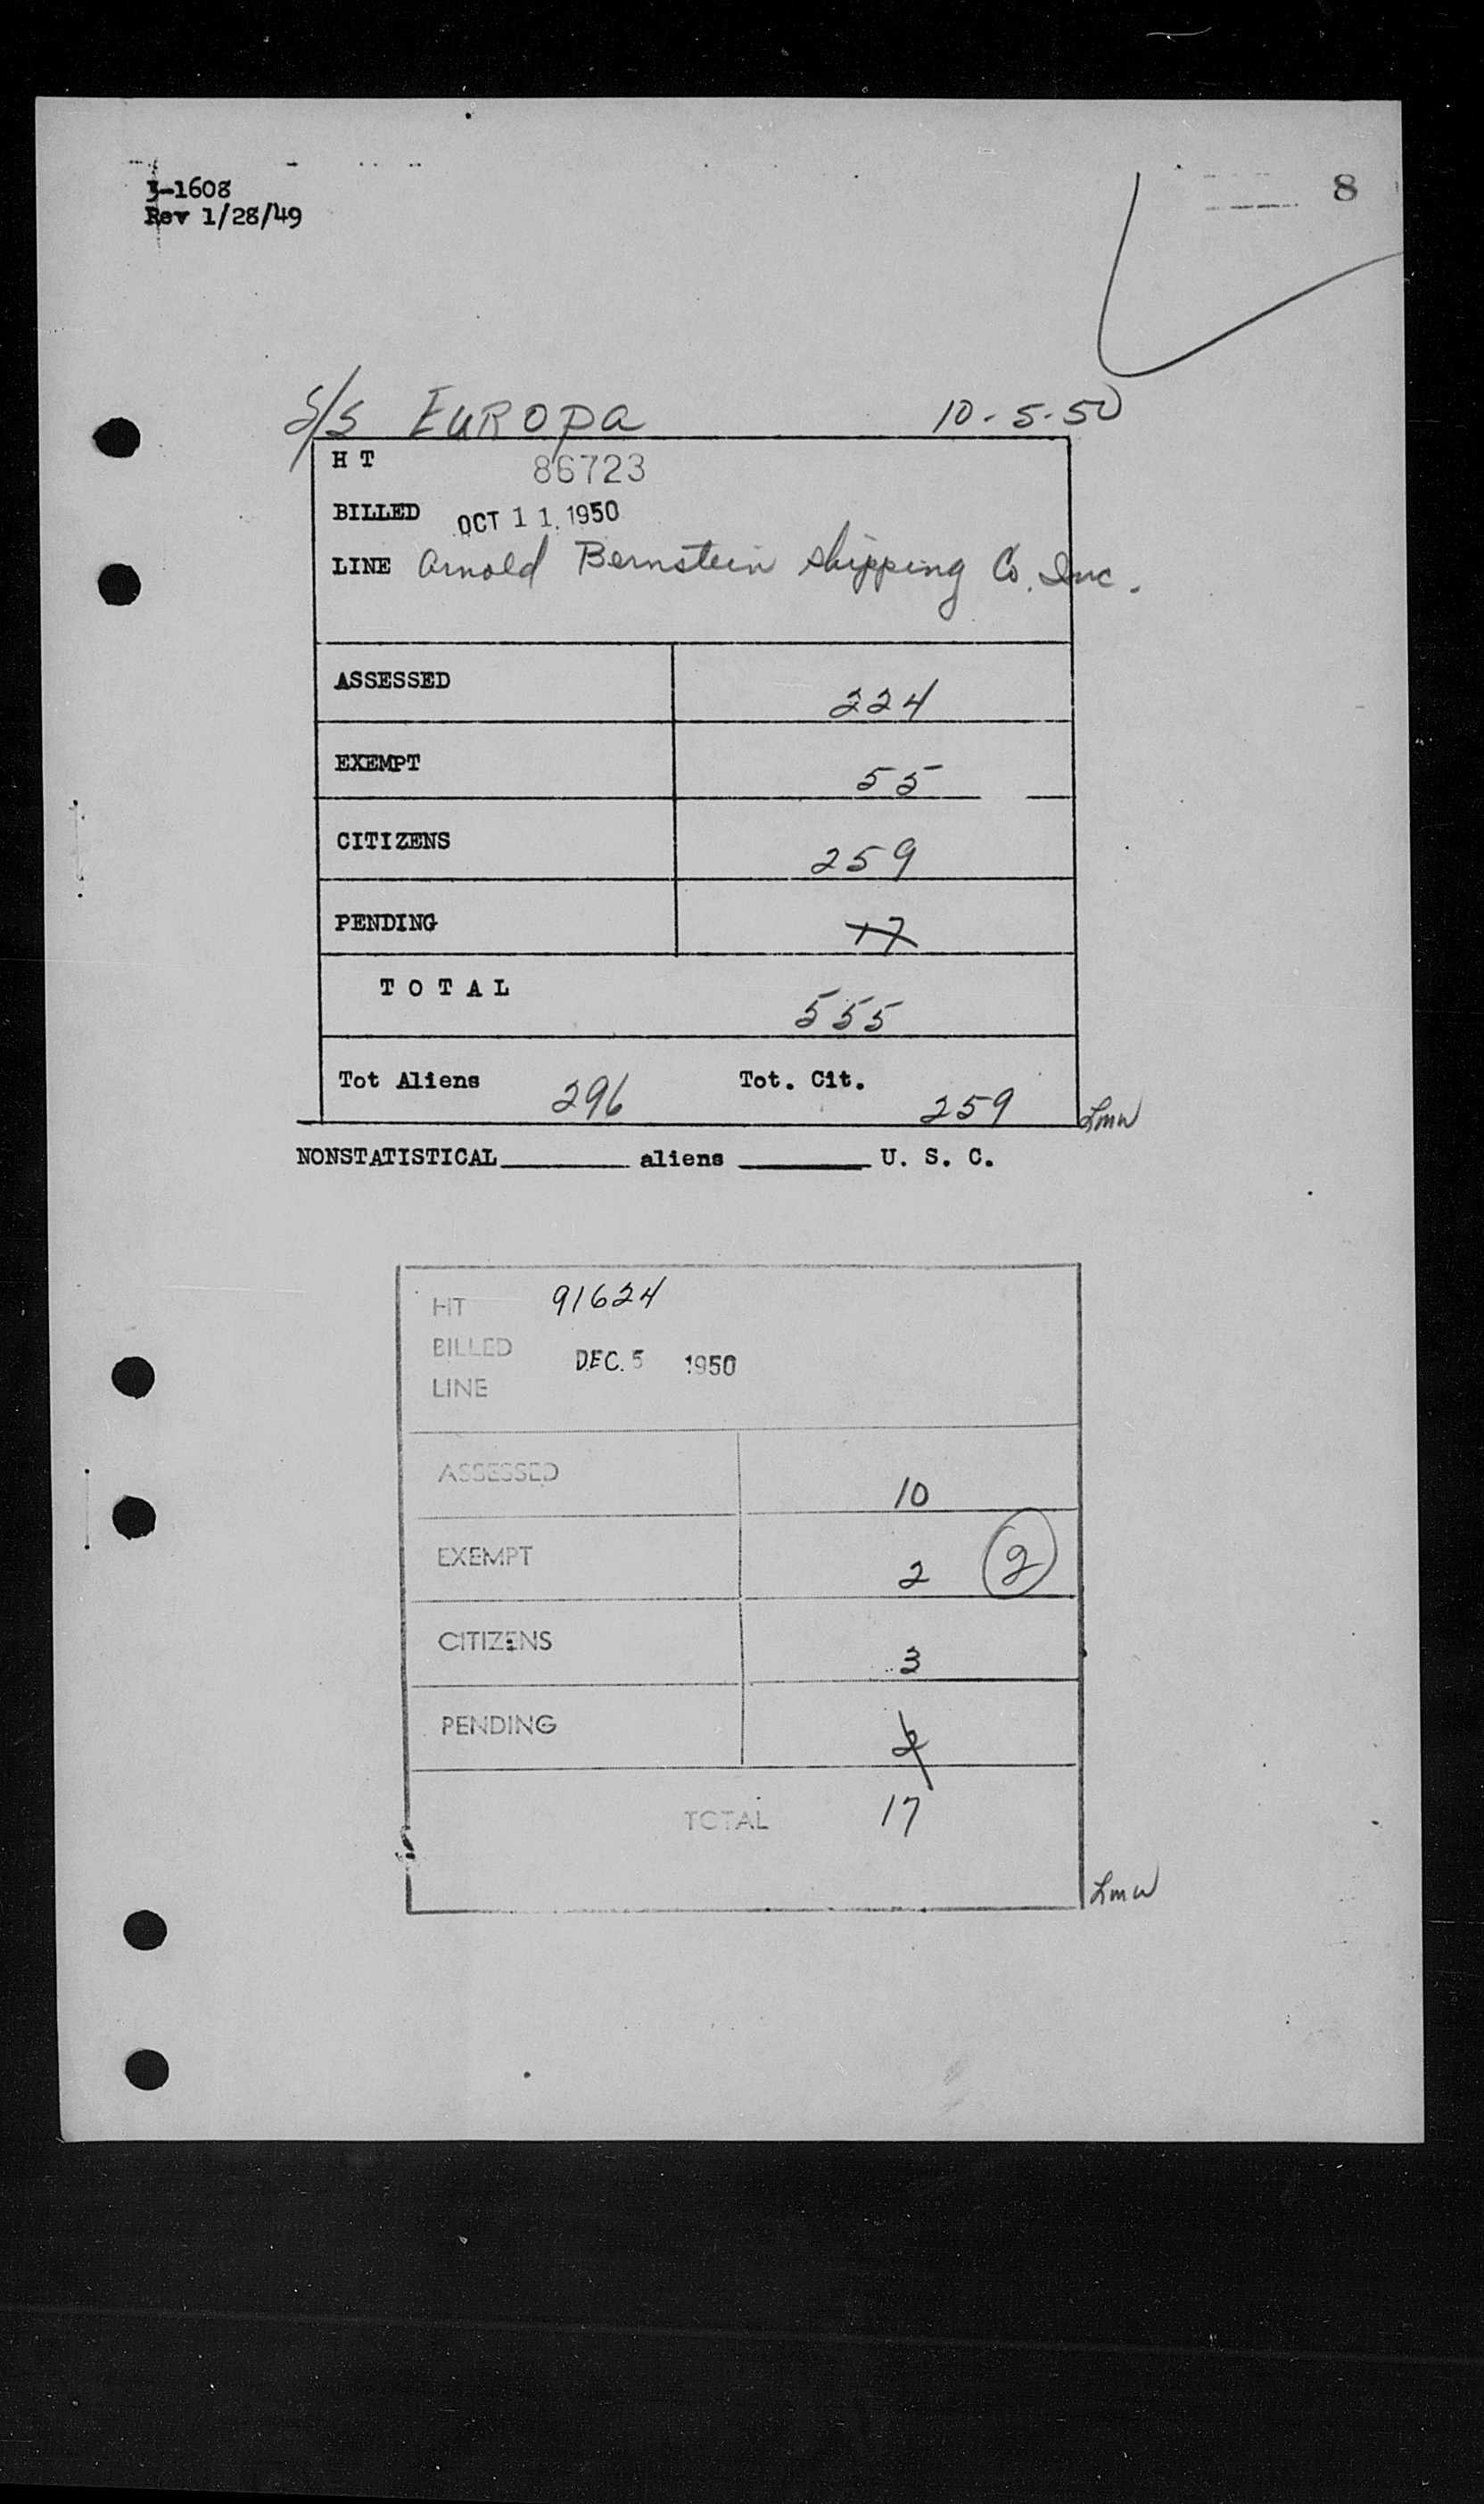 3-1608
Rev 1/28/49
8
S/S Europa 10-5-50
H T 86723
BILLED OCT 11, 1950
LINE Arnold Bernstein Shipping Co. Inc.
ASSESSED 224
EXEMPT 55
CITIZENS 259
PENDING 17
TOTAL 555
Tot Aliens 296 Tot. Cit. 259
Lmw
NONSTATISTICAL aliens U. S. C.
HT 91624
BILLED DEC. 5 1950
LINE
ASSESSED 10
EXEMPT 2 2
CITIZENS 3
PENDING 2
TOTAL 17
Lmw